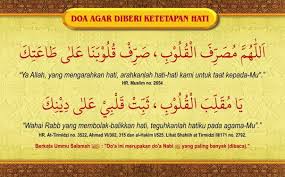 DOA AGAR DIBERI KETETAPAN HATI
اَللّٰهُمَّ مُصَرِّفَ الْقُلُوْبِ ، صَرِّفْ قُلُوْبَنَا عَلَى طَاعَتِكَ
"Ya Allah, yang mengarahkan hati, arahkanlah hati-hati kami untuk taat kepada-Mu".
HR. Muslim no. 2654
يَا مُقَلِّبَ الْقُلُوْبِ ، ثَبِّتْ قَلْبِيْ عَلَى دِيْنِكَ
"Wahai Rabb yang membolak-balikkan hati, teguhkanlah hatiku pada agama-Mu".
HR. At-Tirmidzi no. 3522, Ahmad VI/302, 315 dan al-Hakim I/525. Lihat Shahiih at Tirmidzi III/171 no. 2792.
Berkata Ummu Salamah : "Do'a ini merupakan do'a Nabi ﷺ yang paling banyak (dibaca)."